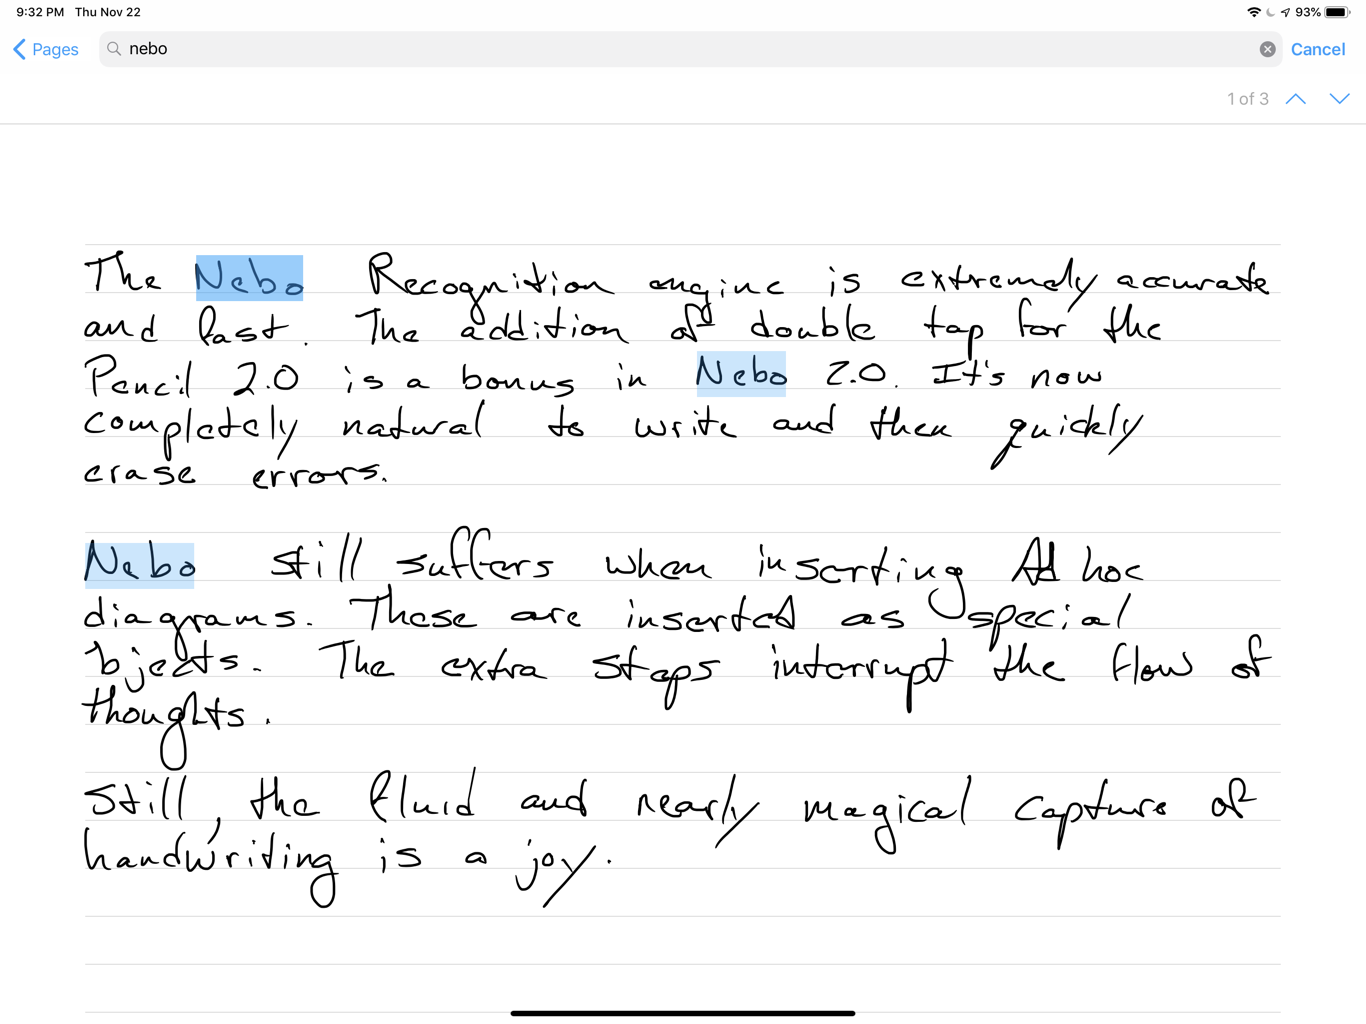 9:32 PM Thu Nov 22 93%
Pages nebo Cancel
1 of 3
The Nebo Recognition engine is extremely accurate
and fast. The addition of double tap for the
Pencil 2.0 is a bonus in Nebo 2.0. It's now
completely natural to write and then quickly
erase errors.
Nebo still suffers when inserting Ad hoc
diagrams. These are inserted as special
bjects. The extra steps interrupt the flow of
thoughts.
Still, the fluid and nearly magical capture of
handwriting is a joy.